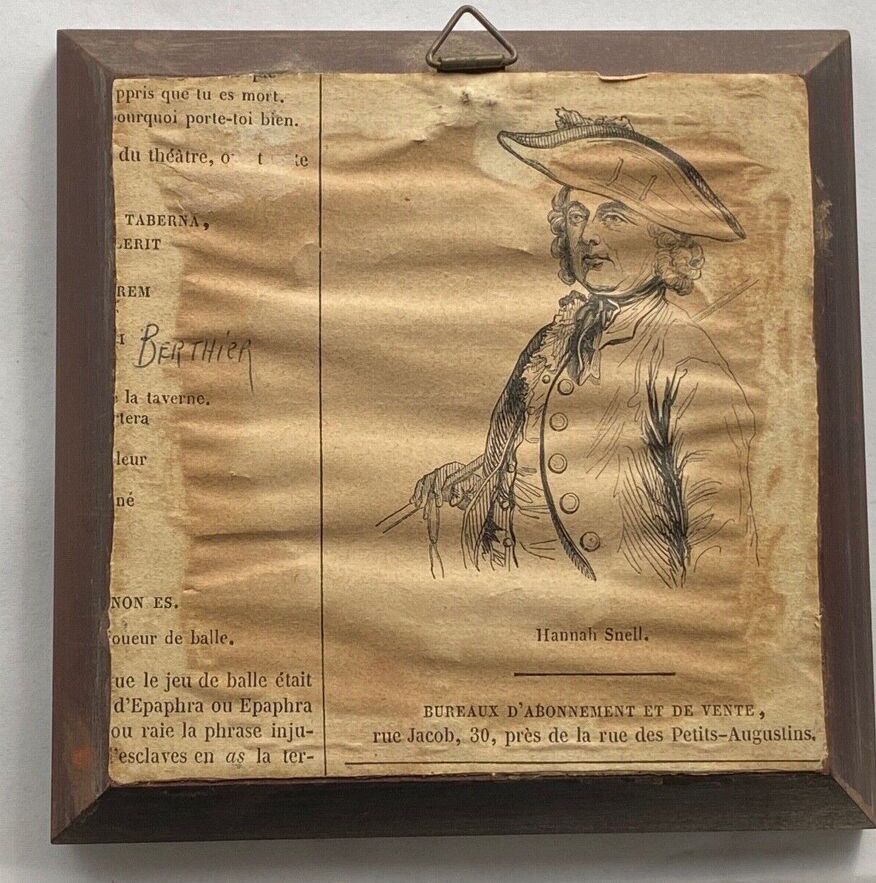 ppris que tu es mort.
ourquoi porte-toi bien.
du théâtre, o
TABERNA,
LERIT
REM
I
BERTHIER
la taverne.
tera
leur
né
NON ES.
oueur de balle.
ue le jeu de balle était
d'Epaphra ou Epaphra
ou raie la phrase inju-
l'esclaves en as la ter-
Hannah Snell.
BUREAUX D'ABONNEMENT ET DE VENTE,
rue Jacob, 30, près de la rue des Petits-Augustins.